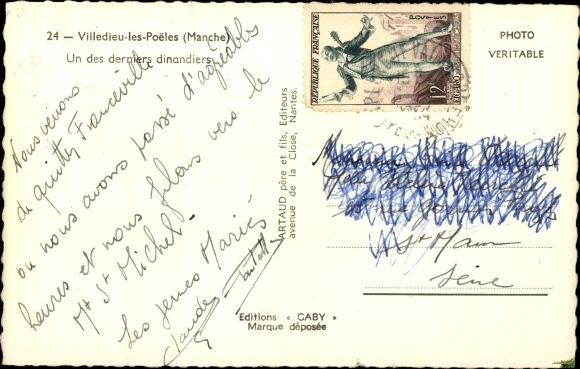 24 — Villedieu-les-Poëles (Manche)
Un des derniers dinandiers
Nous venons
de quitter Franceville
ou nous avons passé d'agréables
heures et nous filons vers le
Mt St Michel.
Les jeunes Mariés
Claude
ARTAUD père et fils, Editeurs
avenue de la Close, Nantes.
Editions « GABY »
Marque déposée
REPUBLIQUE FRANÇAISE
POSTES
12F
FIGARO
PHOTO
VERITABLE
St Maur
Seine